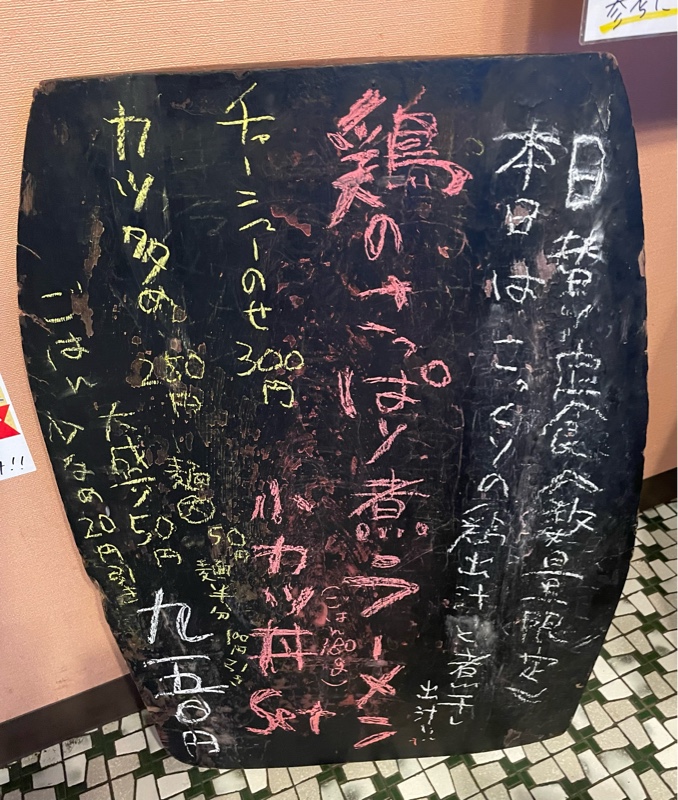 日替り定食(数量限定)
本日はこっくりの鶏出汁と煮干し
出汁!!
鶏のさっぱり煮ラーメン
小カツ丼 Set
(ごはん180g)
チャーシューのせ 300円
カツ多め 250円
麺大 50円
麺半分 100円引き
大盛り50円
ごはん少なめ20円引き
九五〇円